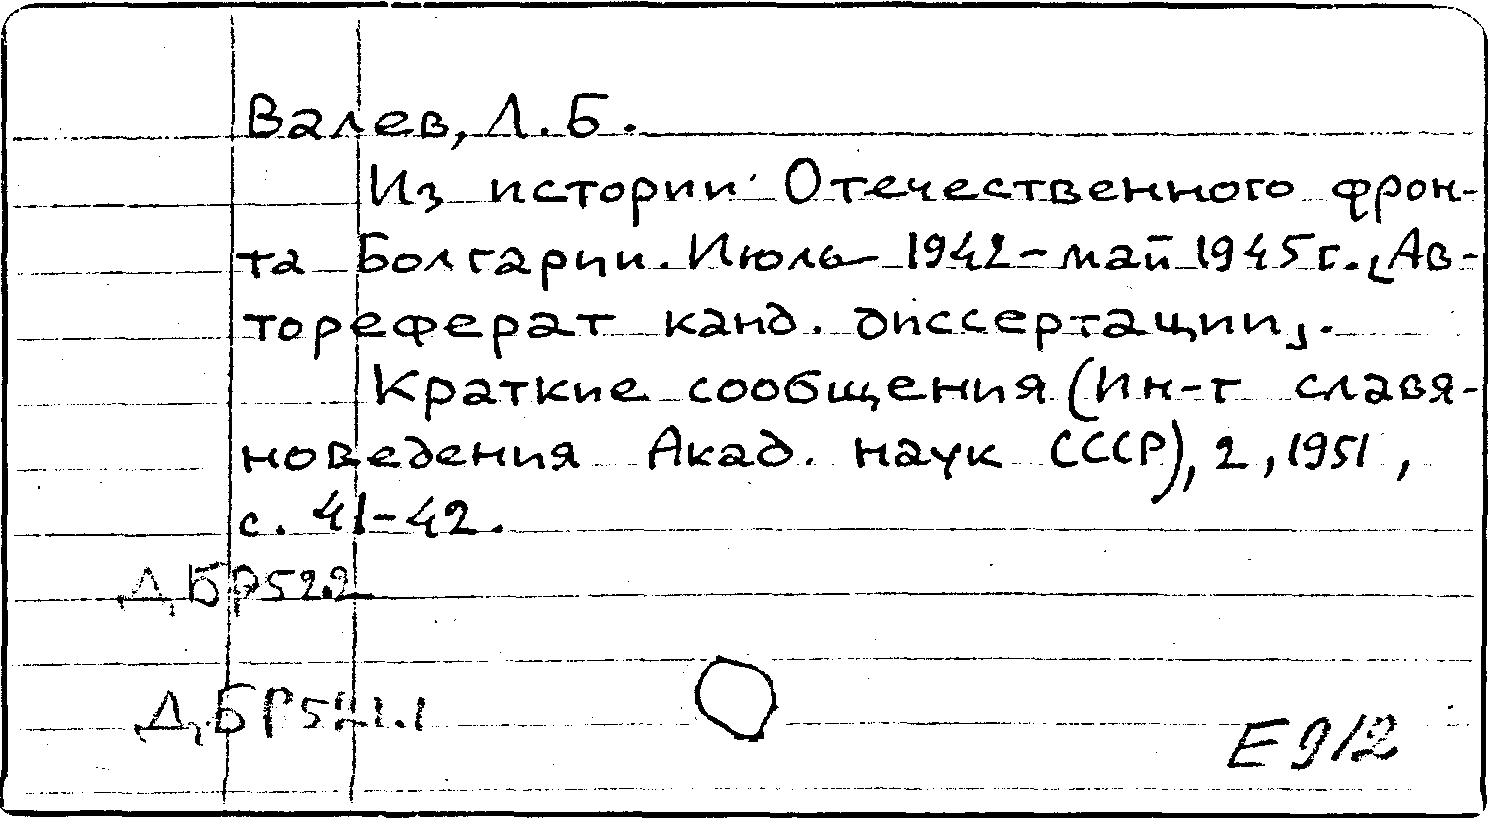 Валев, Л. Б.
Из истории Отечественного фрон-
та Болгарии. Июль 1942 - май 1945 г. [Ав-
тореферат канд. диссертации].
Краткие сообщения (Ин-т славя-
новедения Акад. наук СССР), 2, 1951,
с. 41-42.
ДБР52.2
ДБР521.1
Е912